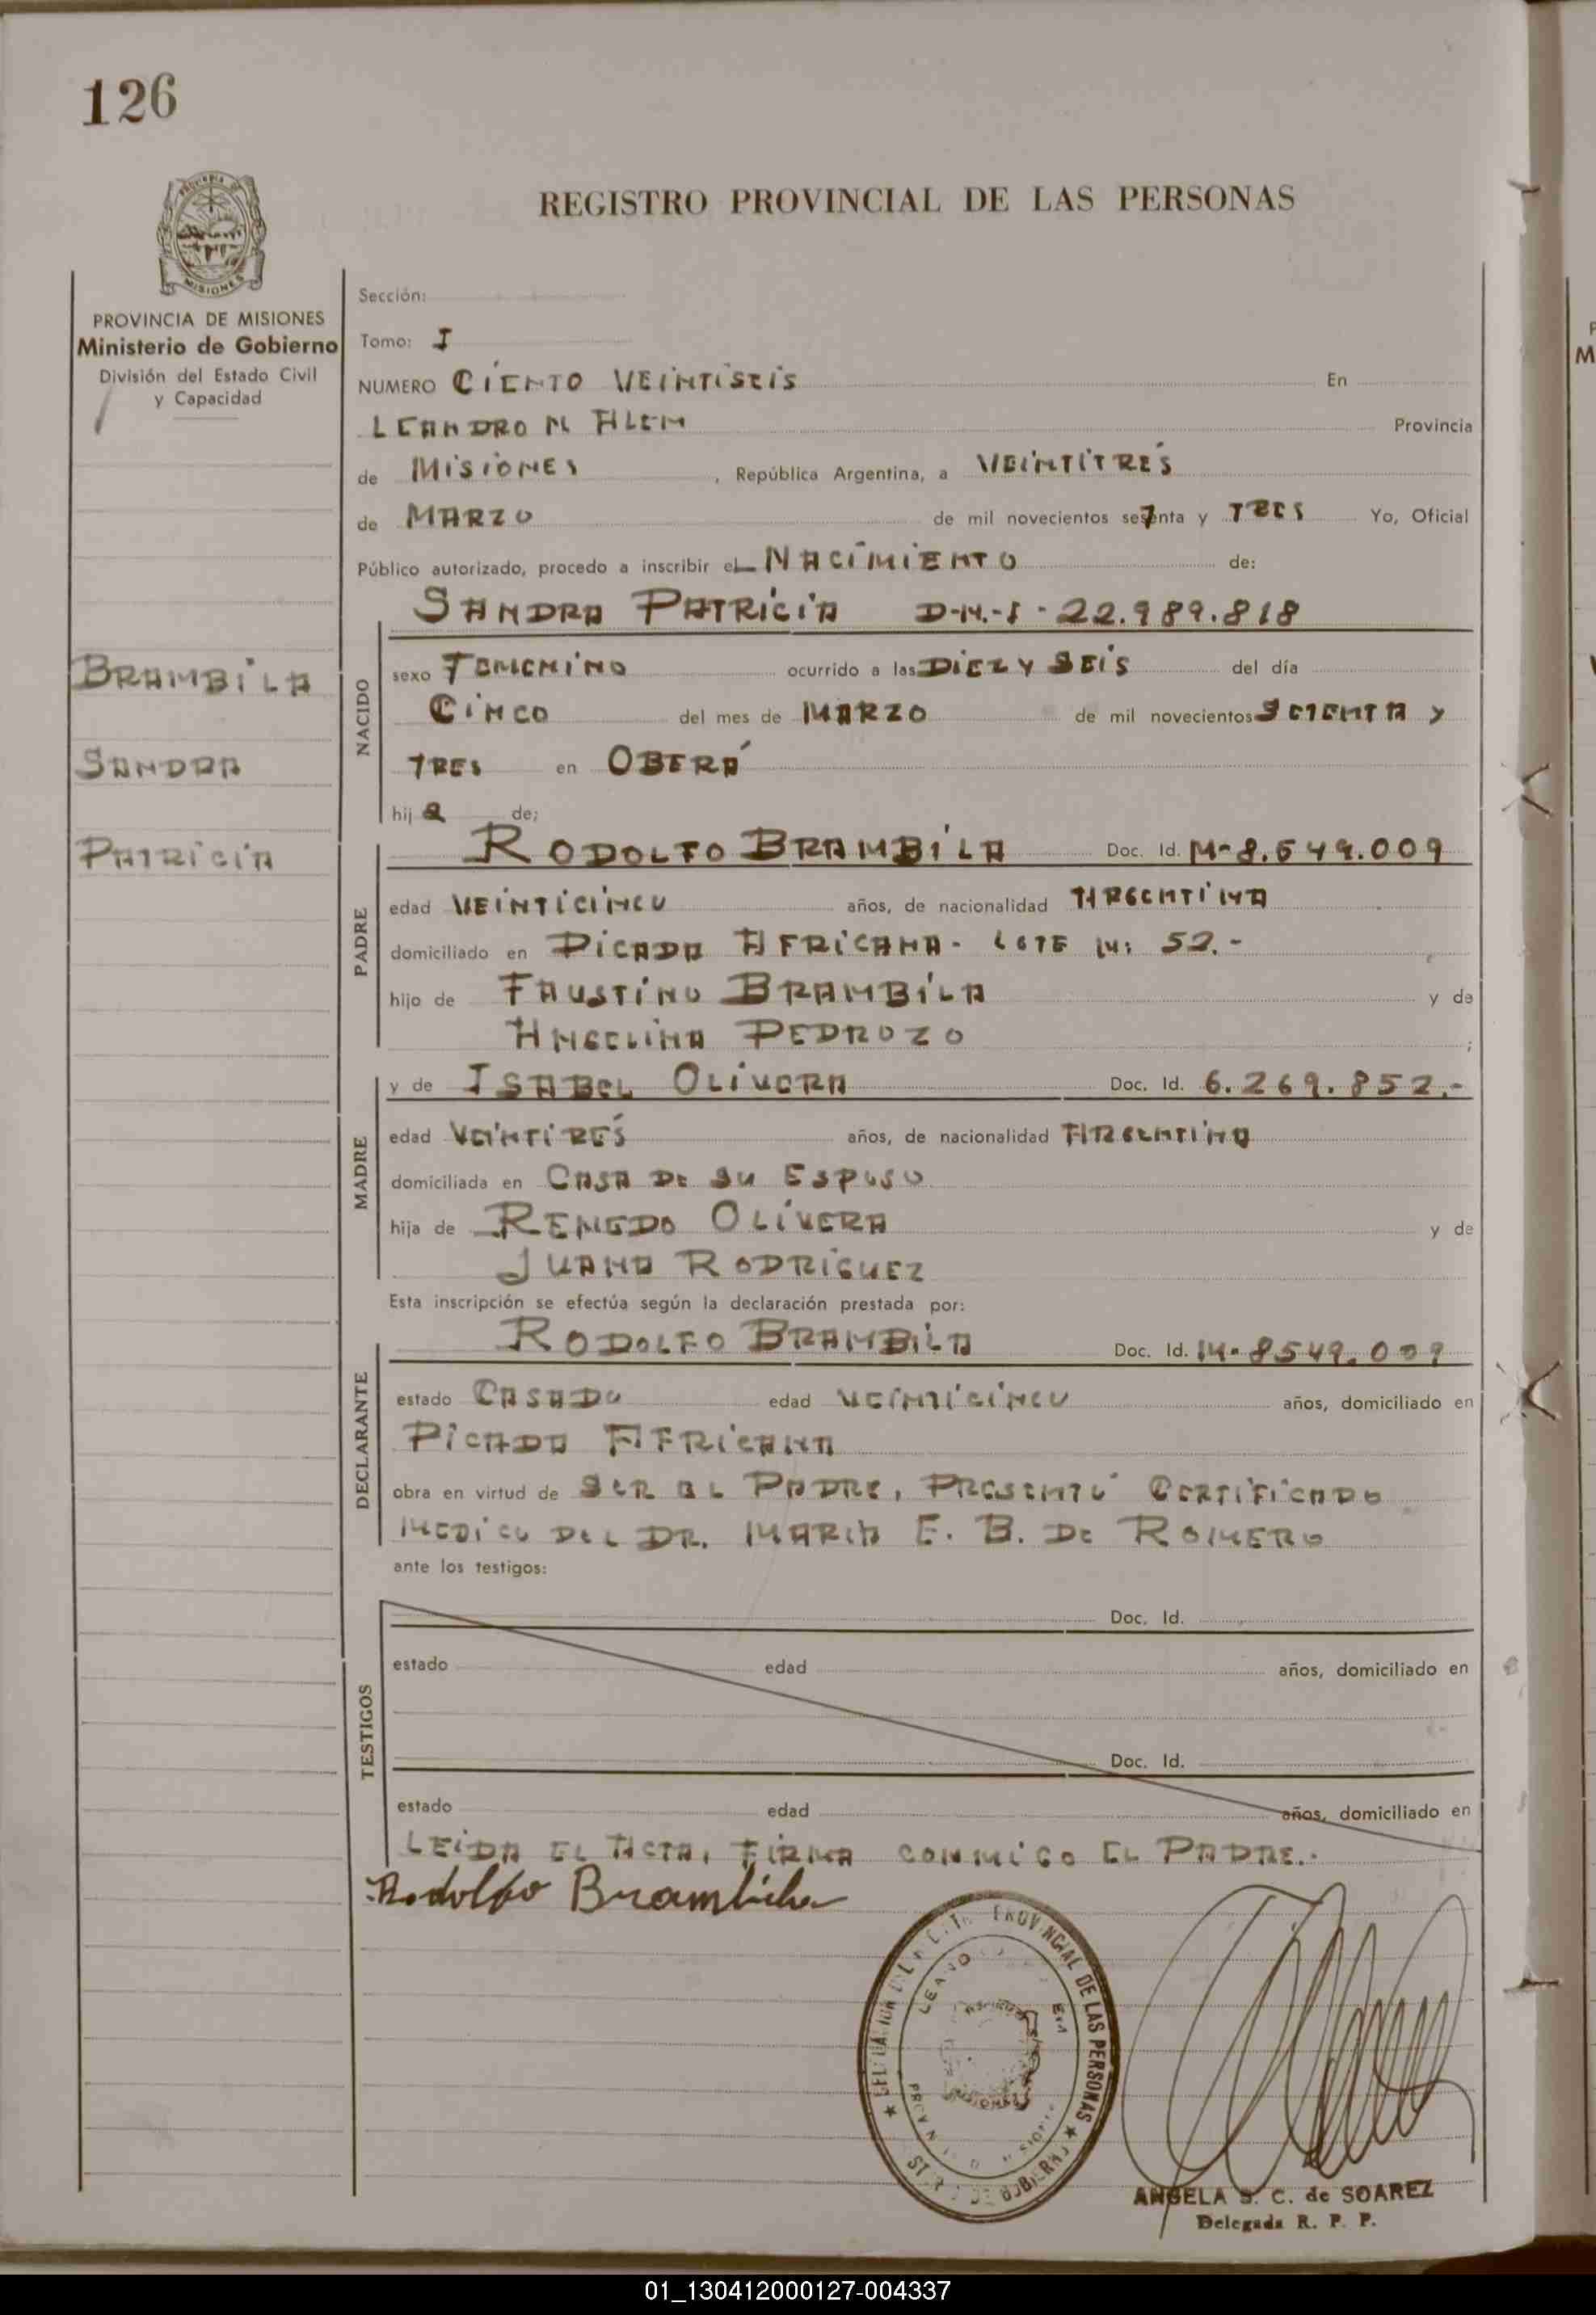 126
REGISTRO PROVINCIAL DE LAS PERSONAS
MISIONES
PROVINCIA DE MISIONES
Ministerio de Gobierno
División del Estado Civil
y Capacidad
BRAMBILA
SANDRA
PATRICIA
Sección:
Tomo: I
NUMERO CIENTO VEINTISEIS En
LEANDRO N ALEM Provincia
de MISIONES, República Argentina, a VEINTITRÉS
de MARZO de mil novecientos se7enta y TRES Yo, Oficial
Público autorizado, procedo a inscribir eL NACIMIENTO de:
SANDRA PATRICIA D-N.-I - 22.989.818
NACIDO
sexo FEMENINO ocurrido a las DIEZ Y SEIS del día
CINCO del mes de MARZO de mil novecientos SETENTA Y
TRES en OBERÁ
hija de;
RODOLFO BRAMBILA Doc. Id. M-8.549.009
PADRE
edad VEINTICINCO años, de nacionalidad ARGENTINA
domiciliado en PICADA AFRICANA- LOTE N: 52.-
hijo de FAUSTINO BRAMBILA y de
ANGELINA PEDROZO ;
y de ISABEL OLIVERA Doc. Id. 6.269.852.-
MADRE
edad VEINTIRÉS años, de nacionalidad ARGENTINA
domiciliada en CASA DE SU ESPOSO
hija de OLIVERA y de
JUANA RODRIGUEZ
Esta inscripción se efectúa según la declaración prestada por:
RODOLFO BRAMBILA Doc. Id. M-8549.009
DECLARANTE
estado CASADO edad VEINTICINCO años, domiciliado en
PICADA AFRICANA
obra en virtud de SER EL PADRE, PRESENTÓ CERTIFICADO
MEDICO DEL DR. MARIA E. B. DE ROMERO
ante los testigos:
TESTIGOS
Doc. Id.
estado edad años, domiciliado en
Doc. Id.
estado edad años, domiciliado en
LEIDA EL ACTA, FIRMA CONMIGO EL PADRE.-
Rodolfo Brambila
PROVINCIAL DE LAS PERSONAS
ANGELA S. C. de SOAREZ
Delegada R. P. P.
01_130412000127-004337